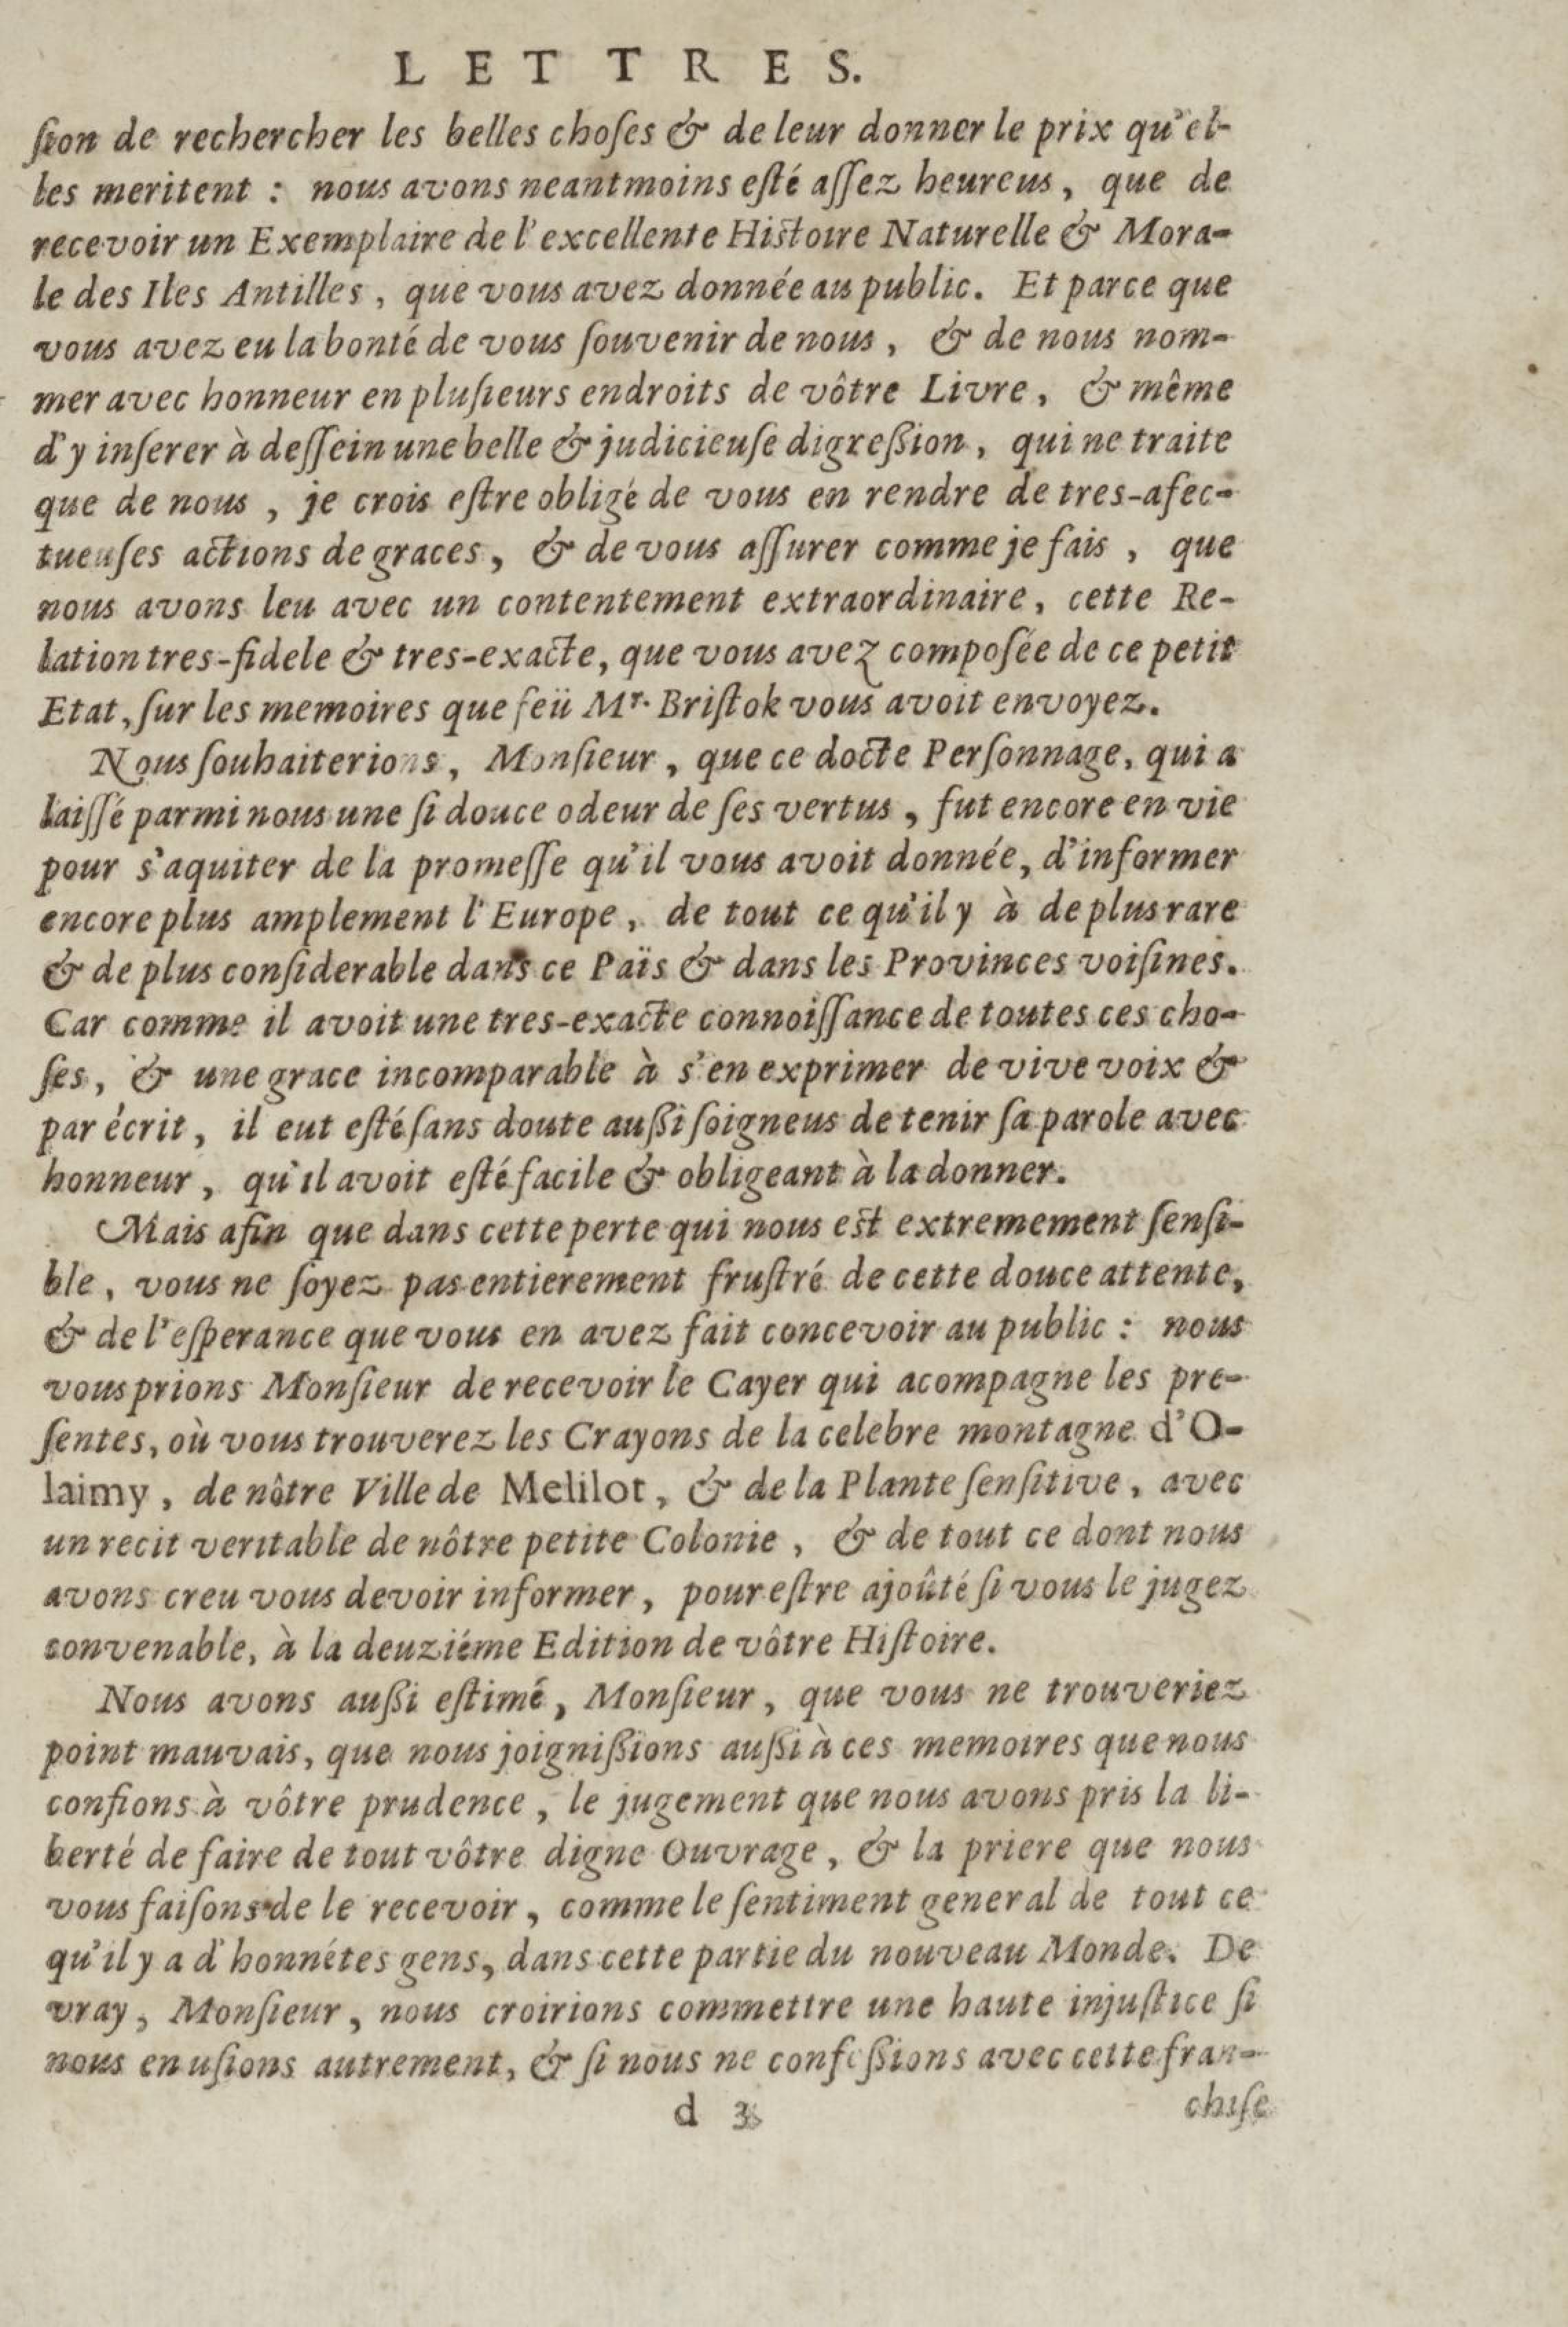 LETTRES.
ſion de rechercher les belles choſes & de leur donner le prix qu'el-
les meritent : nous avons neantmoins eſté aſſez heureus, que de
recevoir un Exemplaire de l'excellente Hiſtoire Naturelle & Mora-
le des Iles Antilles, que vous avez donnée au public. Et parce que
vous avez eu la bonté de vous ſouvenir de nous, & de nous nom-
mer avec honneur en pluſieurs endroits de vôtre Livre, & même
d'y inſerer à deſſein une belle & judicieuſe digreßion, qui ne traite
que de nous, je crois eſtre obligé de vous en rendre de tres-afec-
tueuſes actions de graces, & de vous aſſurer comme je fais, que
nous avons leu avec un contentement extraordinaire, cette Re-
lation tres-fidele & tres-exacte, que vous avez compoſée de ce petit
Etat, ſur les memoires que feü Mr. Briſtok vous avoit envoyez.
Nous ſouhaiterions, Monſieur, que ce docte Perſonnage, qui a
laiſſé parmi nous une ſi douce odeur de ſes vertus, fut encore en vie
pour s'aquiter de la promeſſe qu'il vous avoit donnée, d'informer
encore plus amplement l'Europe, de tout ce qu'il y à de plus rare
& de plus conſiderable dans ce Païs & dans les Provinces voiſines.
Car comme il avoit une tres-exacte connoiſſance de toutes ces cho-
ſes, & une grace incomparable à s'en exprimer de vive voix &
par écrit, il eut eſté ſans doute außi ſoigneus de tenir ſa parole avec
honneur, qu'il avoit eſté facile & obligeant à la donner.
Mais afin que dans cette perte qui nous eſt extremement ſenſi-
ble, vous ne ſoyez pas entierement fruſtré de cette douce attente,
& de l'eſperance que vous en avez fait concevoir au public : nous
vous prions Monſieur de recevoir le Cayer qui acompagne les pre-
ſentes, où vous trouverez les Crayons de la celebre montagne d'O-
laimy, de nôtre Ville de Melilot, & de la Plante ſenſitive, avec
un recit veritable de nôtre petite Colonie, & de tout ce dont nous
avons creu vous devoir informer, pour eſtre ajoûté ſi vous le jugez
convenable, à la deuziéme Edition de vôtre Hiſtoire.
Nous avons außi eſtimé, Monſieur, que vous ne trouveriez
point mauvais, que nous joignißions außi à ces memoires que nous
confions à vôtre prudence, le jugement que nous avons pris la li-
berté de faire de tout vôtre digne Ouvrage, & la priere que nous
vous faiſons de le recevoir, comme le ſentiment general de tout ce
qu'il y a d'honnétes gens, dans cette partie du nouveau Monde. De
vray, Monſieur, nous croirions commettre une haute injuſtice ſi
nous en uſions autrement, & ſi nous ne confeßions avec cette fran-
d 3 chiſe